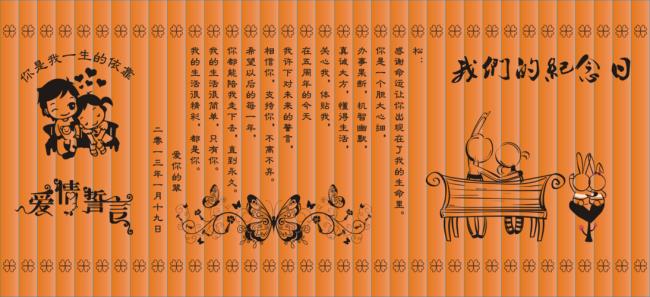 我们的纪念日
松：
感谢命运让你出现在了我的生命里。
你是一个胆大心细，
办事果断，机智幽默，
真诚大方，懂得生活，
关心我，体贴我，
在五周年的今天
我许下对未来的誓言，
相信你，支持你，不离不弃。
希望以后的每一年，
你都能陪我走下去，直到永久。
我的生活很简单，只有你。
我的生活很精彩，都是你。
爱你的翠
二零一三年一月十九日
你是我一生的依靠
爱情誓言